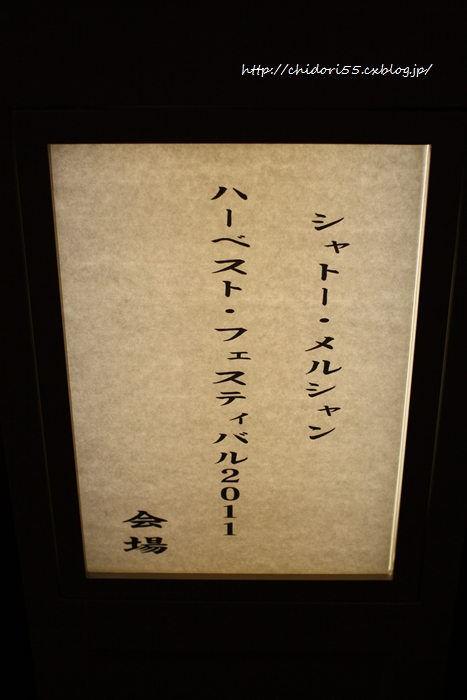 http://chidori55.cxblog.jp/
シャトー・メルシャン
ハーベスト・フェスティバル2011
会場